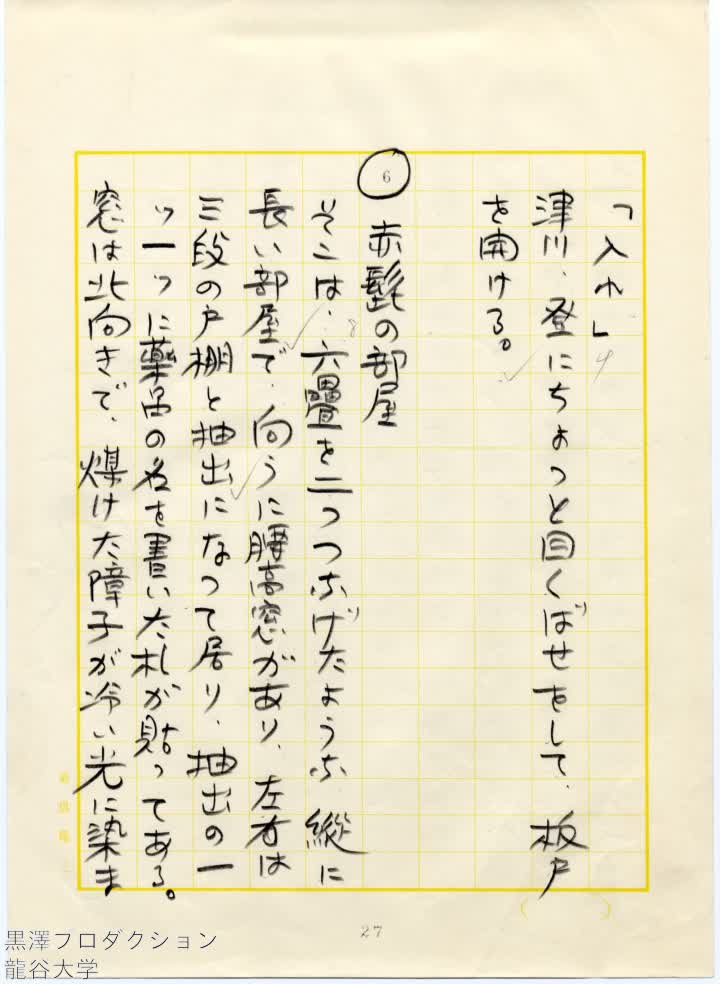 「入れ」
津川、登にちょっと目くばせをして、板戸
を開ける。
6
赤髭の部屋
そこは、六疊を二つつなげたような 縱に
長い部屋で、向うに腰高窓があり、左右は
三段の戸棚と抽出になって居り、抽出の一
ッ一ッに薬品の名を書いた札が貼ってある。
窓は北向きで、煤けた障子が冷い光に染ま
27
黒澤プロダクション
龍谷大学